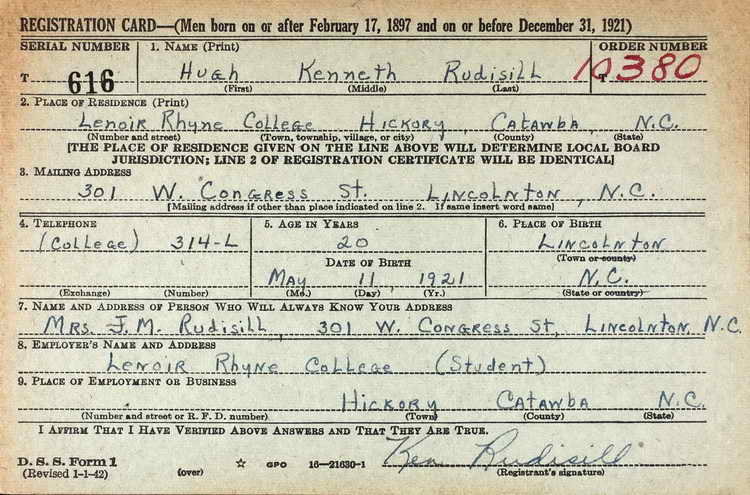 REGISTRATION CARD—(Men born on or after February 17, 1897 and on or before December 31, 1921)
SERIAL NUMBER 1. NAME (Print) ORDER NUMBER
T 616 Hugh Kenneth Rudisill T 10380
(First) (Middle) (Last)
2. PLACE OF RESIDENCE (Print)
Lenoir Rhyne College Hickory, Catawba, N.C.
(Number and street) (Town, township, village, or city) (County) (State)
[THE PLACE OF RESIDENCE GIVEN ON THE LINE ABOVE WILL DETERMINE LOCAL BOARD
JURISDICTION; LINE 2 OF REGISTRATION CERTIFICATE WILL BE IDENTICAL]
3. MAILING ADDRESS
301 W. Congress St. Lincolnton, N.C.
[Mailing address if other than place indicated on line 2. If same insert word same]
4. TELEPHONE 5. AGE IN YEARS 6. PLACE OF BIRTH
(College) 314-L 20 Lincolnton
DATE OF BIRTH (Town or county)
May 11, 1921 N.C.
(Exchange) (Number) (Mo.) (Day) (Yr.) (State or country)
7. NAME AND ADDRESS OF PERSON WHO WILL ALWAYS KNOW YOUR ADDRESS
Mrs. J. M. Rudisill, 301 W. Congress St, Lincolnton, N.C.
8. EMPLOYER'S NAME AND ADDRESS
Lenoir Rhyne College (Student)
9. PLACE OF EMPLOYMENT OR BUSINESS
Hickory Catawba N.C.
(Number and street or R. F. D. number) (Town) (County) (State)
I AFFIRM THAT I HAVE VERIFIED ABOVE ANSWERS AND THAT THEY ARE TRUE.
D. S. S. Form 1 Ken Rudisill
(Revised 1-1-42) (over) ☆ GPO 16—21630-1 (Registrant's signature)